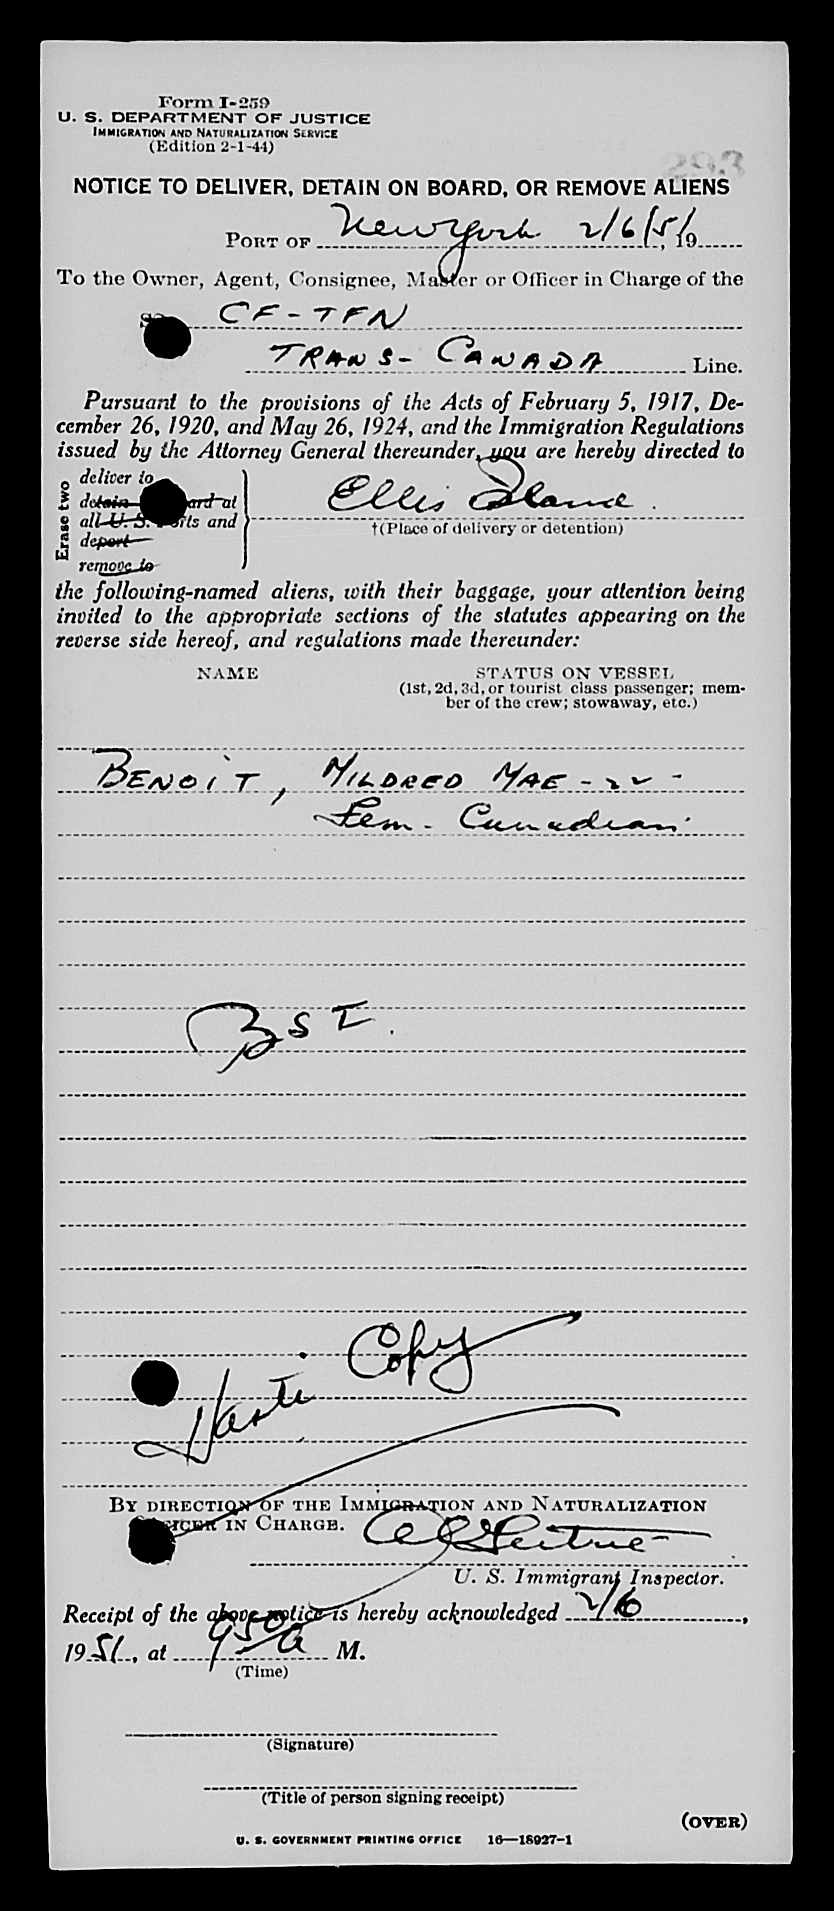 Form I-259
U. S. DEPARTMENT OF JUSTICE
IMMIGRATION AND NATURALIZATION SERVICE
(Edition 2-1-44)
NOTICE TO DELIVER, DETAIN ON BOARD, OR REMOVE ALIENS
PORT OF New York 2/6/51, 19
To the Owner, Agent, Consignee, Master or Officer in Charge of the
CF-TFN
TRANS-CANADA Line.
Pursuant to the provisions of the Acts of February 5, 1917, De-
cember 26, 1920, and May 26, 1924, and the Immigration Regulations
issued by the Attorney General thereunder, you are hereby directed to
Erase two
deliver to
detain ard at
all U. S. Ports and
deport
remove to
Ellis Island.
†(Place of delivery or detention)
the following-named aliens, with their baggage, your attention being
invited to the appropriate sections of the statutes appearing on the
reverse side hereof, and regulations made thereunder:
NAME STATUS ON VESSEL
(1st, 2d, 3d, or tourist class passenger; mem-
ber of the crew; stowaway, etc.)
BENOIT, MILDRED MAE - 22 -
Fem - Canadian.
BSI.
Copy
BY DIRECTION OF THE IMMIGRATION AND NATURALIZATION
OFFICER IN CHARGE.
U. S. Immigrant Inspector.
Receipt of the above notice is hereby acknowledged 2/6,
1951, at 950 A M.
(Time)
(Signature)
(Title of person signing receipt)
(OVER)
U. S. GOVERNMENT PRINTING OFFICE 16—18927-1